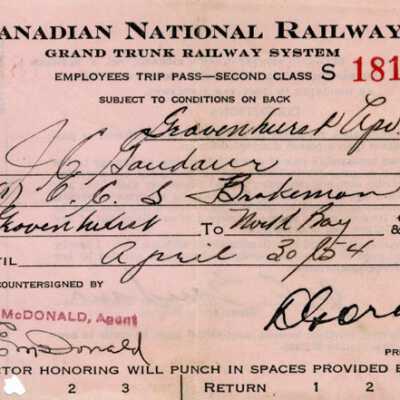 ANADIAN NATIONAL RAILWAY
GRAND TRUNK RAILWAY SYSTEM
EMPLOYEES TRIP PASS—SECOND CLASS S 181
SUBJECT TO CONDITIONS ON BACK
Gravenhurst Apr
J C Gaudaur
O. C. S Brakeman
Gravenhurst To North Bay &
TIL April 30/54
COUNTERSIGNED BY
McDONALD, Agent
McDonald
PR
CTOR HONORING WILL PUNCH IN SPACES PROVIDED B
2 3 RETURN 1 2